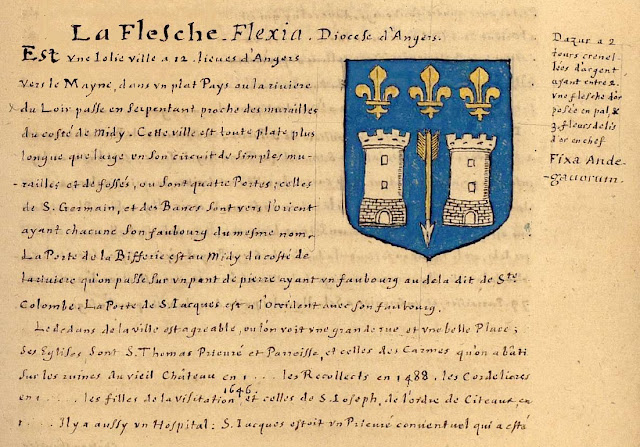 La Flesche. Flexia. Diocese d'Angers.
Est vne Iolie ville a 12. lieues d'Angers
vers le Mayne, dans vn plat Pays ou la riuiere
du Loir passe en serpentant proche des murailles
du costé de Midy. Cette ville est toute plate plus
longue que large en son circuit de simples mu-
-railles et de fossés, ou sont quatre Portes; celles
de S. Germain, et des Bancs sont vers l'Orient
ayant chacune son faubourg du mesme nom.
La Porte de la Bifferie est au Midy du costé de
la riuiere qu'on passe sur vn pont de pierre ayant vn faubourg au dela dit de Ste.
Colombe. La Porte de S. Iacques est a l'Occident auec son faubourg.
Le dedans de la ville est agreable, ou l'on voit vne grande rue et vne belle Place;
Ses Eglises sont S. Thomas Prieuré et Parroisse, et celles des Carmes qu'on a bâti
sur les ruines du vieil Château en 1.... les Recollects en 1488. les Cordelieres
en 1.... les filles de la Visitation 1646. et celles de S. Ioseph, de l'ordre de Citeaux, en
1.... Il y a aussy vn Hospital: S. Iacques estoit vn Prieuré conuentuel qui a esté
Dazur a 2
tours crenel-
lées d'argent
ayant entre 2.
vne flesche d'or
posée en pal &
3. fleurs de lis
d'or en chef
Fixa Ande-
gauorum.